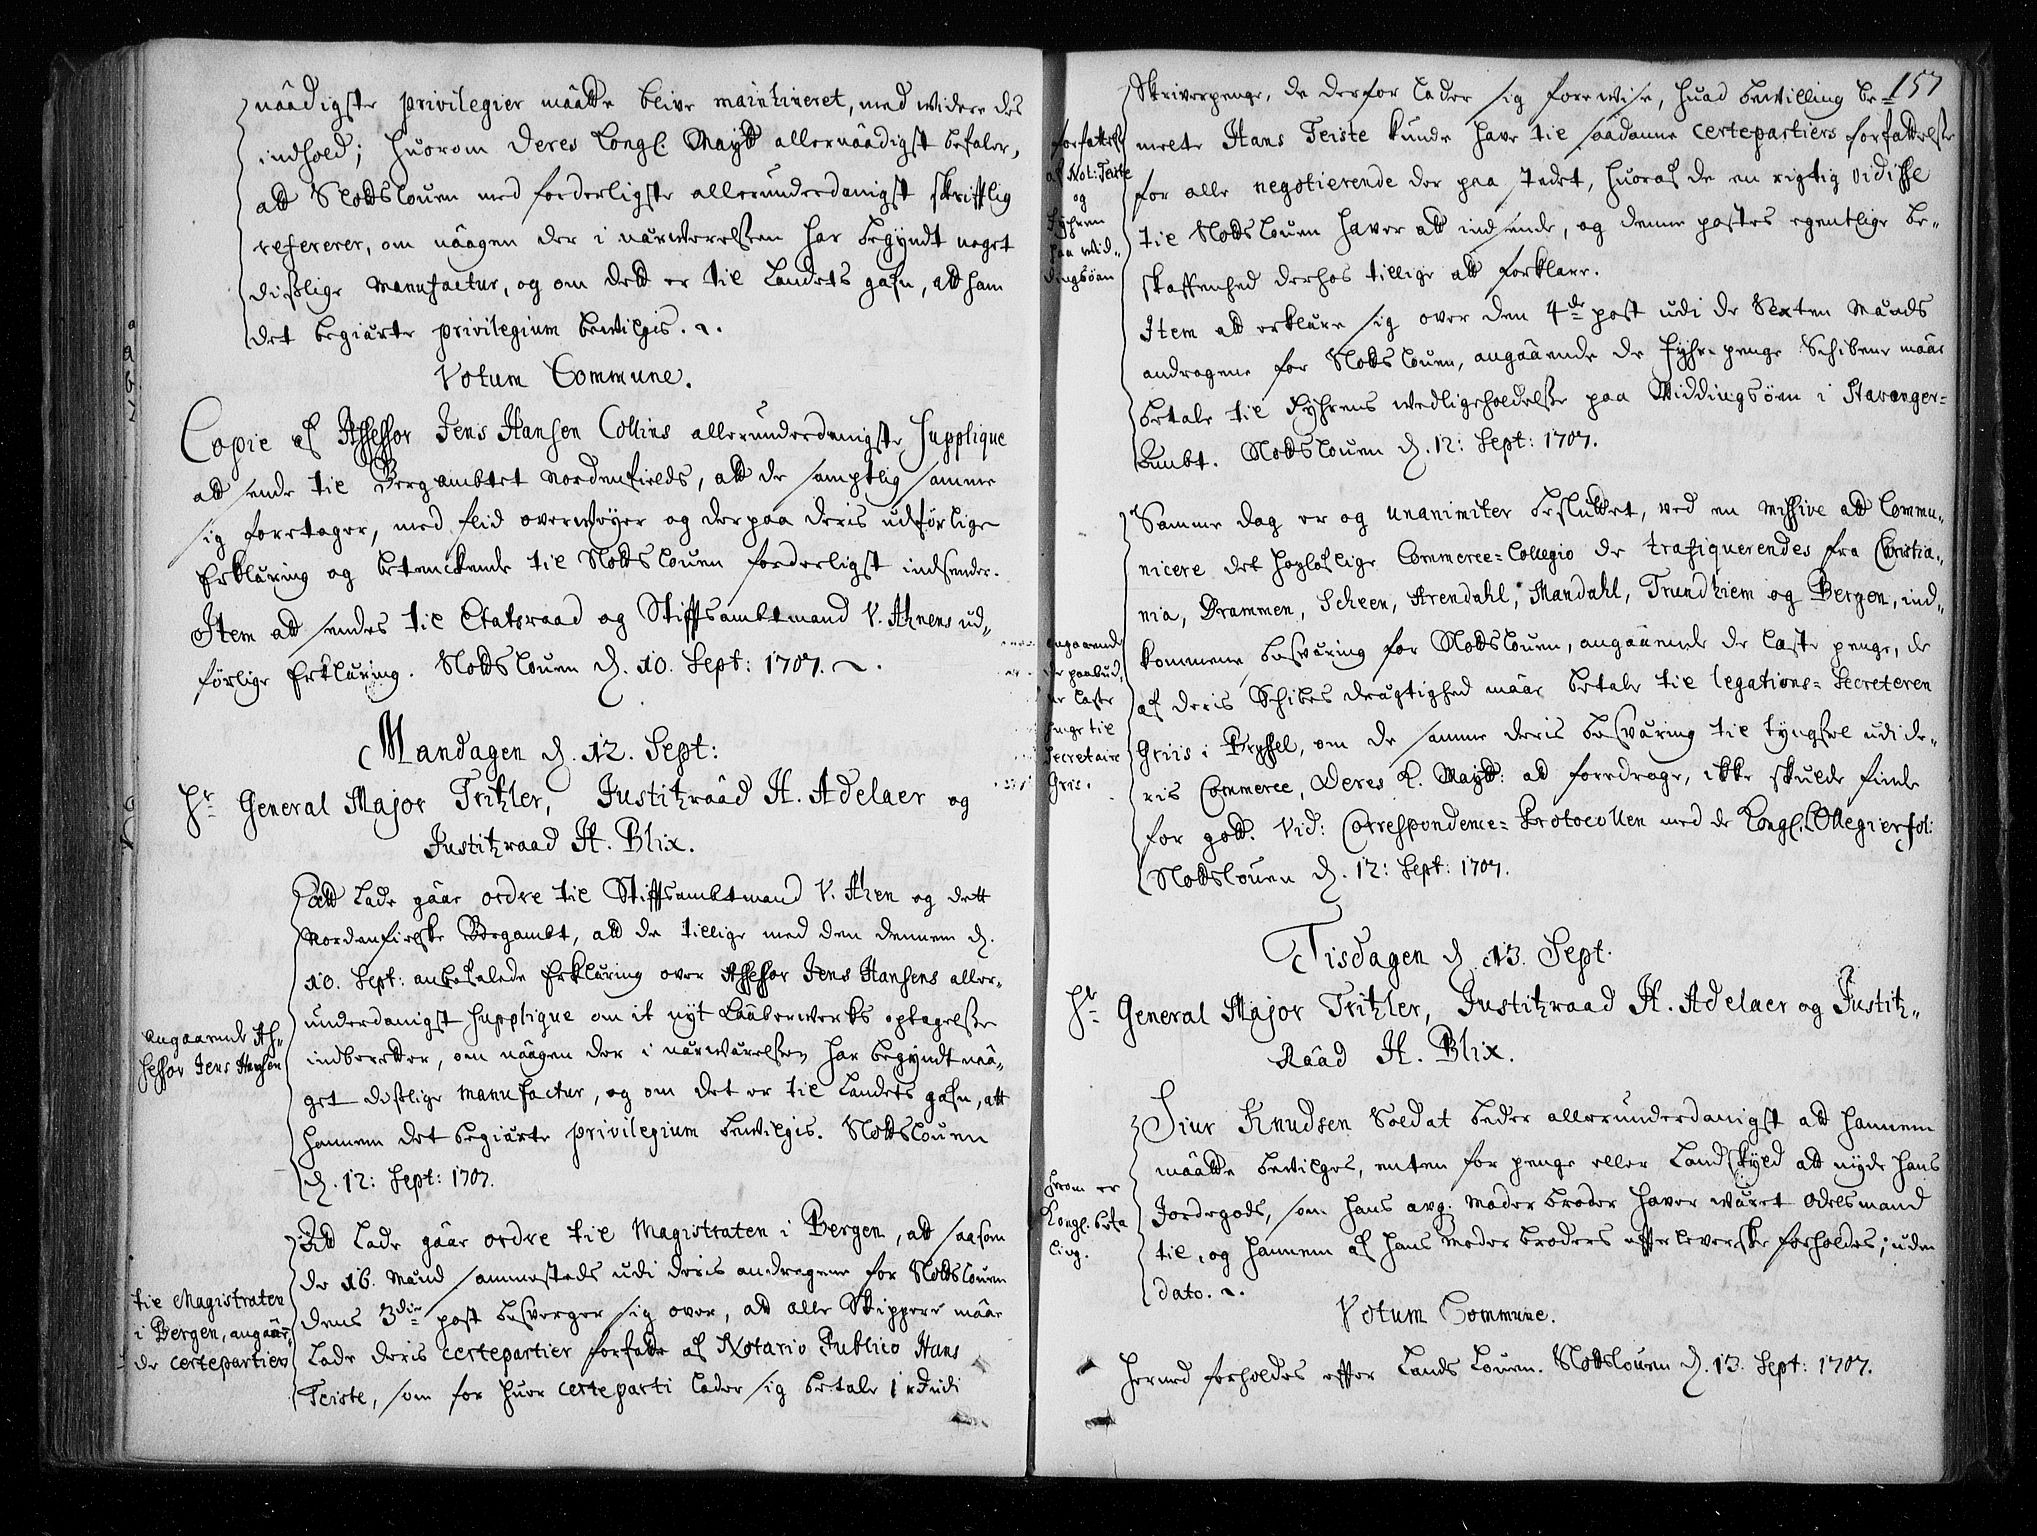 naadigste privilegier maatte blive maintineret, med widere des
indhold; Huorom Deres Kongl. Maytt allernaadigst befaler,
att Slottslouen med forderligste allerunderdanigst skrifftlig
refererer, om naagen der i närwerelsen har begyndt noget
dislige Manufactur, og om dett er til Landets gafn, att ham
det begiärte privilegium bewilgis.
Votum Commune.
Copie af Assessor Jens Hansen Collins allerunderdanigste Supplique
att sende til Bergambtet Nordenfields, att de samptlig samme
sig foretager, med flid overwøyer og derpaa deris udførlige
Erkläring og betenckende til Slottslouen forderligst indsender.
Item att sendes til Etatsraad og Stifftsambtmand V. Ahnens ud-
førlige Erkläring. Slottslouen d. 10. Sept: 1707.
Mandagen d. 12. Sept:
Hr General Major Tritzler, Justitzraad H. Adelaer og
Justitzraad H. Blix.
Att lade gaae ordre til Stifftsambtmand V. Ahen og dett
Nordenfielske Bergambt, att de tillige med den dennem d.
10. Sept: anbefalede Erkläring over Assessor Jens Hansens aller-
underdanigst Supplique om it nyt Kaaberwerks optagelse
indberetter, om naagen der i närwärelsen har begyndt naa-
get dislige Manufactur, og om det er til Landets gafn, att
hannem det begiärte privilegium bewilgis. Slottslouen
d. 12: Sept: 1707.
angaaende As-
sessor Jens Hansen
Att lade gaae ordre til Magistraten i Bergen, att saasom
de 16. Mänd sammesteds udi deris andragene for Slottslouen
dens 3die post besverger sig over, att alle Skippere maae
lade deris certepartier forfatte af Notario Publico Hans
Teiste, som for huer certeparti lader sig betale 1 rd udi
til Magistraten
i Bergen, angaaen-
de certepartier
157
Skriverpenge, de derfor lader sig forewise, huad bewilling be-
melte Hans Teiste kunde have til saadanne certepartiers forfattelse
for alle negotierende der paa Stedet, huoraf de en rigtig vidisse
til Slottslouen haver att indsende, og denne postes egentlige be-
skaffenhed derhos tillige att forklare.
Item att erkläre sig over den 4de post udi de Sexten Mänds
andragene for Slottslouen, angaaende de Fyhr-penge Schibene maae
betale til Fyhrens wedligeholdelse paa Widdingsøen i Stavanger-
Ambt. Slottslouen d. 12: Sept: 1707.
forfattelse
af Not: Teiste
og
Fyhren
paa Wid-
dingsøen
Samme dag er og unanimiter besluttet, ved en missive att Commu-
nicere det høylofflige Commerce-Collegio de trafiquerendes fra Christia-
nia, Drammen, Scheen, Arendahl, Mandahl, Trundhiem og Bergen, ind-
kommene besväring for Slottslouen, angaaende de läste penge, de
af deris Schibes drägtighed maae betale til legations-Secreteren
Griis i Bryssel, om de samme deris besväring til tyngsel udi de-
ris Commerce, Deres K. Maytt: att foredrage, ikke skulde finde
for gott. Vid: Correspondence-Protocollen med de Kongl. Collegier fol:
Slottslouen d. 12: Sept: 1707.
angaaende
de paabud-
ne läste
penge til
Secretaire
Gris.
Tisdagen d. 13. Sept.
Hr General Major Tritzler, Justitzraad H. Adelaer og Justitz-
Raad H. Blix.
Siur Knudsen Soldat beder allerunderdanigst att hannem
maatte bevilges, enten for penge eller Landskyld att nyde hans
Jordegods, som hans avg: Moder broder haver wäret Odelsmand
til, og hannem af hans Moder broders efterleverske forholdes; uden
dato.
Herom er
Kongl. befa
ling.
Votum Commune.
Hermed forholdes effter Lands Louen. Slottslouen d. 13. Sept: 1707.